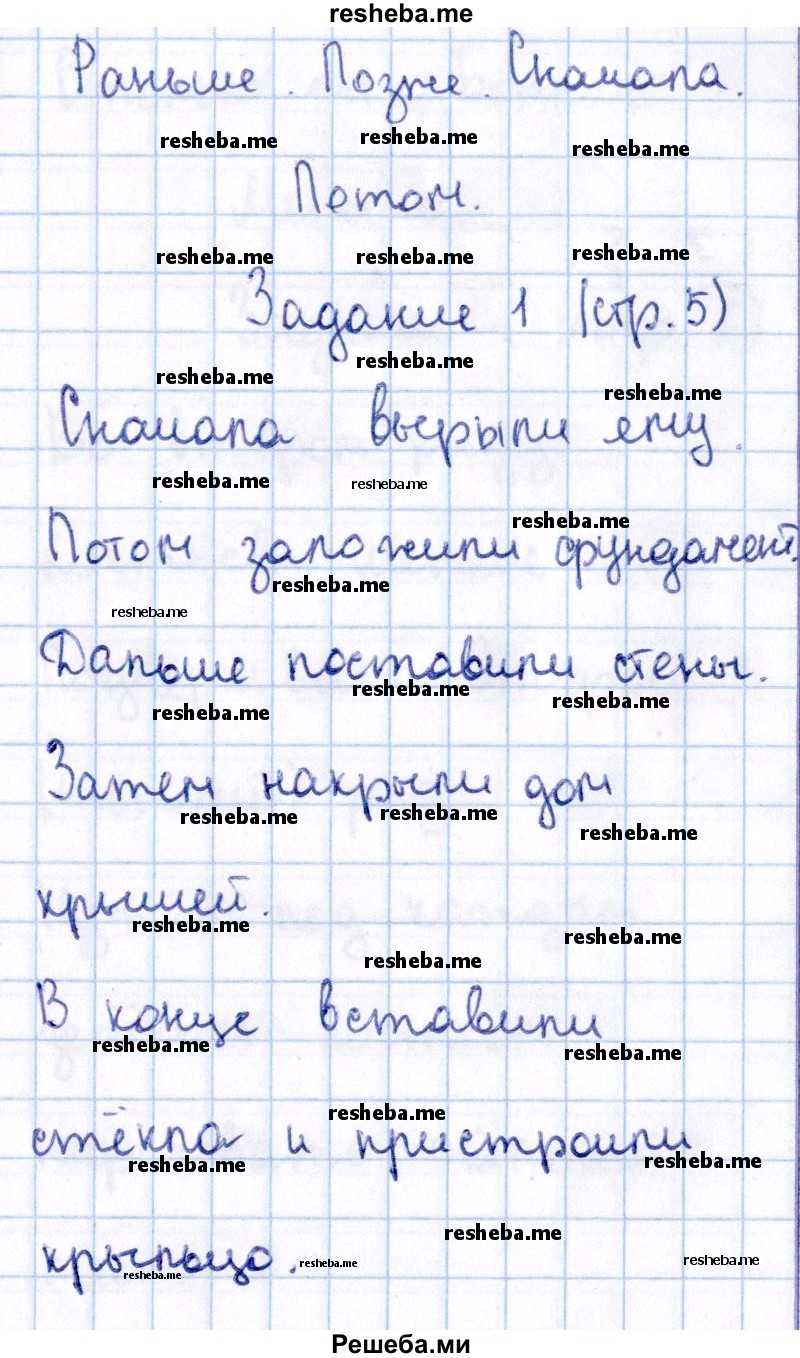 resheba.me
Раньше. Позже. Сначала.
resheba.me resheba.me resheba.me
Потом.
resheba.me resheba.me resheba.me
Задание 1 (стр. 5)
resheba.me resheba.me resheba.me
Сначала вырыли яму.
resheba.me resheba.me
Потом заложили фундамент.
resheba.me resheba.me
resheba.me
Дальше поставили стены.
resheba.me resheba.me resheba.me
Затем накрыли дом
resheba.me resheba.me resheba.me
крышей.
resheba.me resheba.me resheba.me
В конце вставили
resheba.me resheba.me
resheba.me
стёкла и пристроили
resheba.me resheba.me
resheba.me
крыльцо.
resheba.me resheba.me resheba.me
Решеба.ми